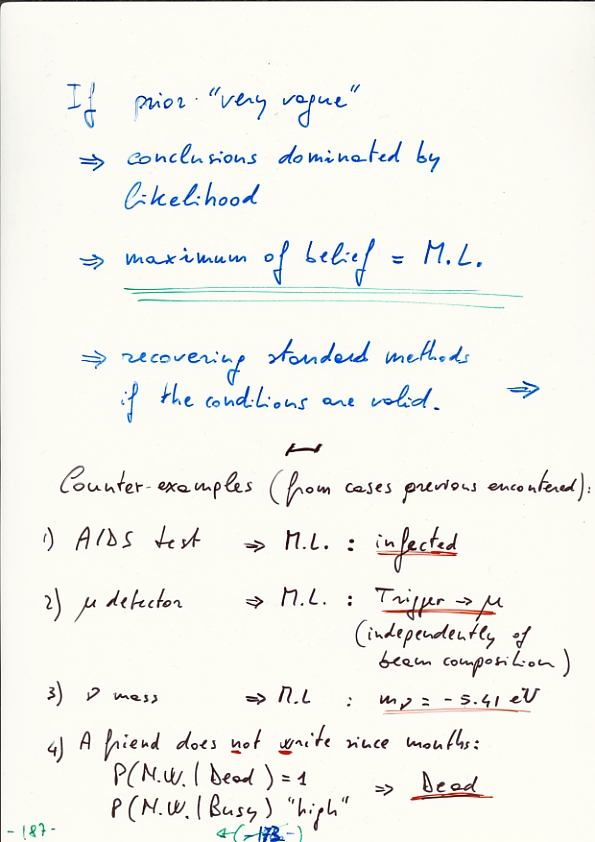 If prior "very vague"
⇒ conclusions dominated by
likelihood
⇒ maximum of belief = M.L.
⇒ recovering standard methods
if the conditions are valid. ⇒
Counter-examples (from cases previous encontered):
1) AIDS test ⇒ M.L. : infected
2) μ detector ⇒ M.L. : Trigger → μ
(independently of
beam composition)
3) ν mass ⇒ M.L : mν = -5.41 eV
4) A friend does not write since months:
P(N.W. | Dead) = 1
⇒ Dead
P(N.W. | Busy) "high"
-187- ←(-173-)